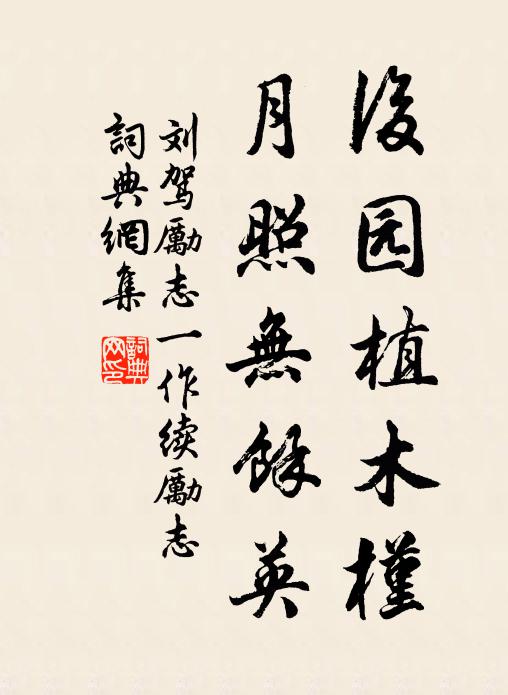 後园植木槿
月照無餘英
刘駕勵志一作续勵志
詞典網集
詞典网印